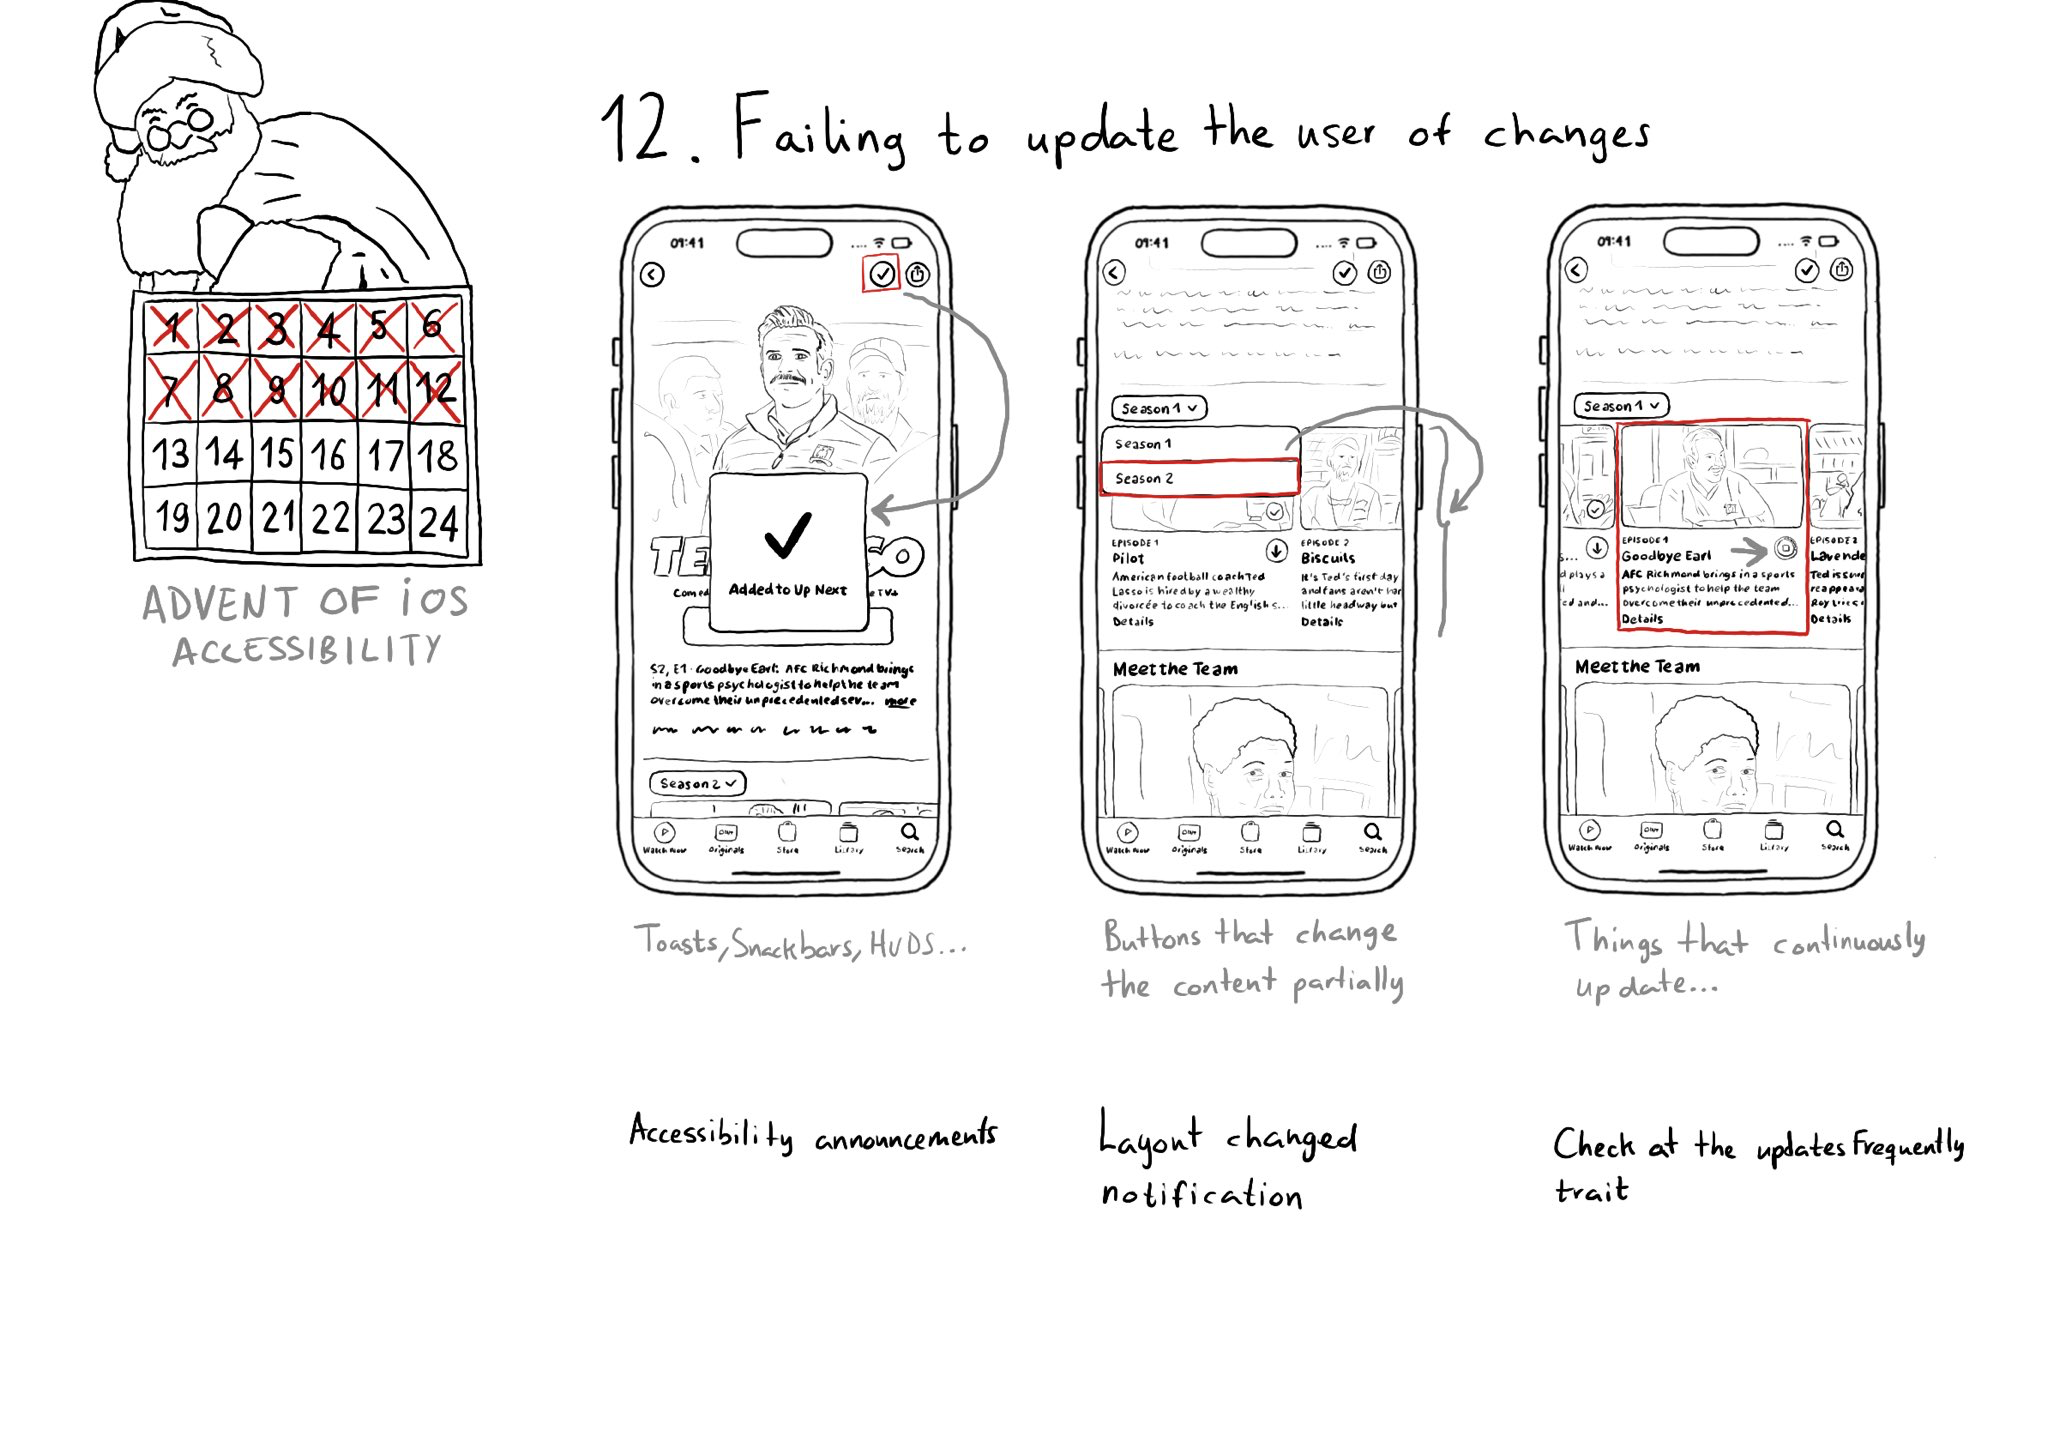 12. Failing to update the user of changes
1 2 3 4 5 6
7 8 9 10 11 12
13 14 15 16 17 18
19 20 21 22 23 24
ADVENT OF iOS
ACCESSIBILITY
09:41
Added to Up Next
S2, E1 · Goodbye Earl: AFC Richmond brings
in a sports psychologist to help the team
overcome their unprecedented ser... more
Season 2
Watch Now Originals Store Library Search
Toasts, Snackbars, HUDS...
Accessibility announcements
09:41
Season 1
Season 1
Season 2
EPISODE 1
Pilot
American football coach Ted
Lasso is hired by a wealthy
divorcée to coach the English s...
Details
EPISODE 2
Biscuits
It's Ted's first day
and fans aren't
little headway
Details
Meet the Team
Watch Now Originals Store Library Search
Buttons that change
the content partially
Layout changed
notification
09:41
Season 1
EPISODE 1
Goodbye Earl
AFC Richmond brings in a sports
psychologist to help the team
overcome their unprecedented...
Details
Lavende
Details
Meet the Team
Watch Now Originals Store Library Search
Things that continuously
update...
Check at the updatesFrequently
trait